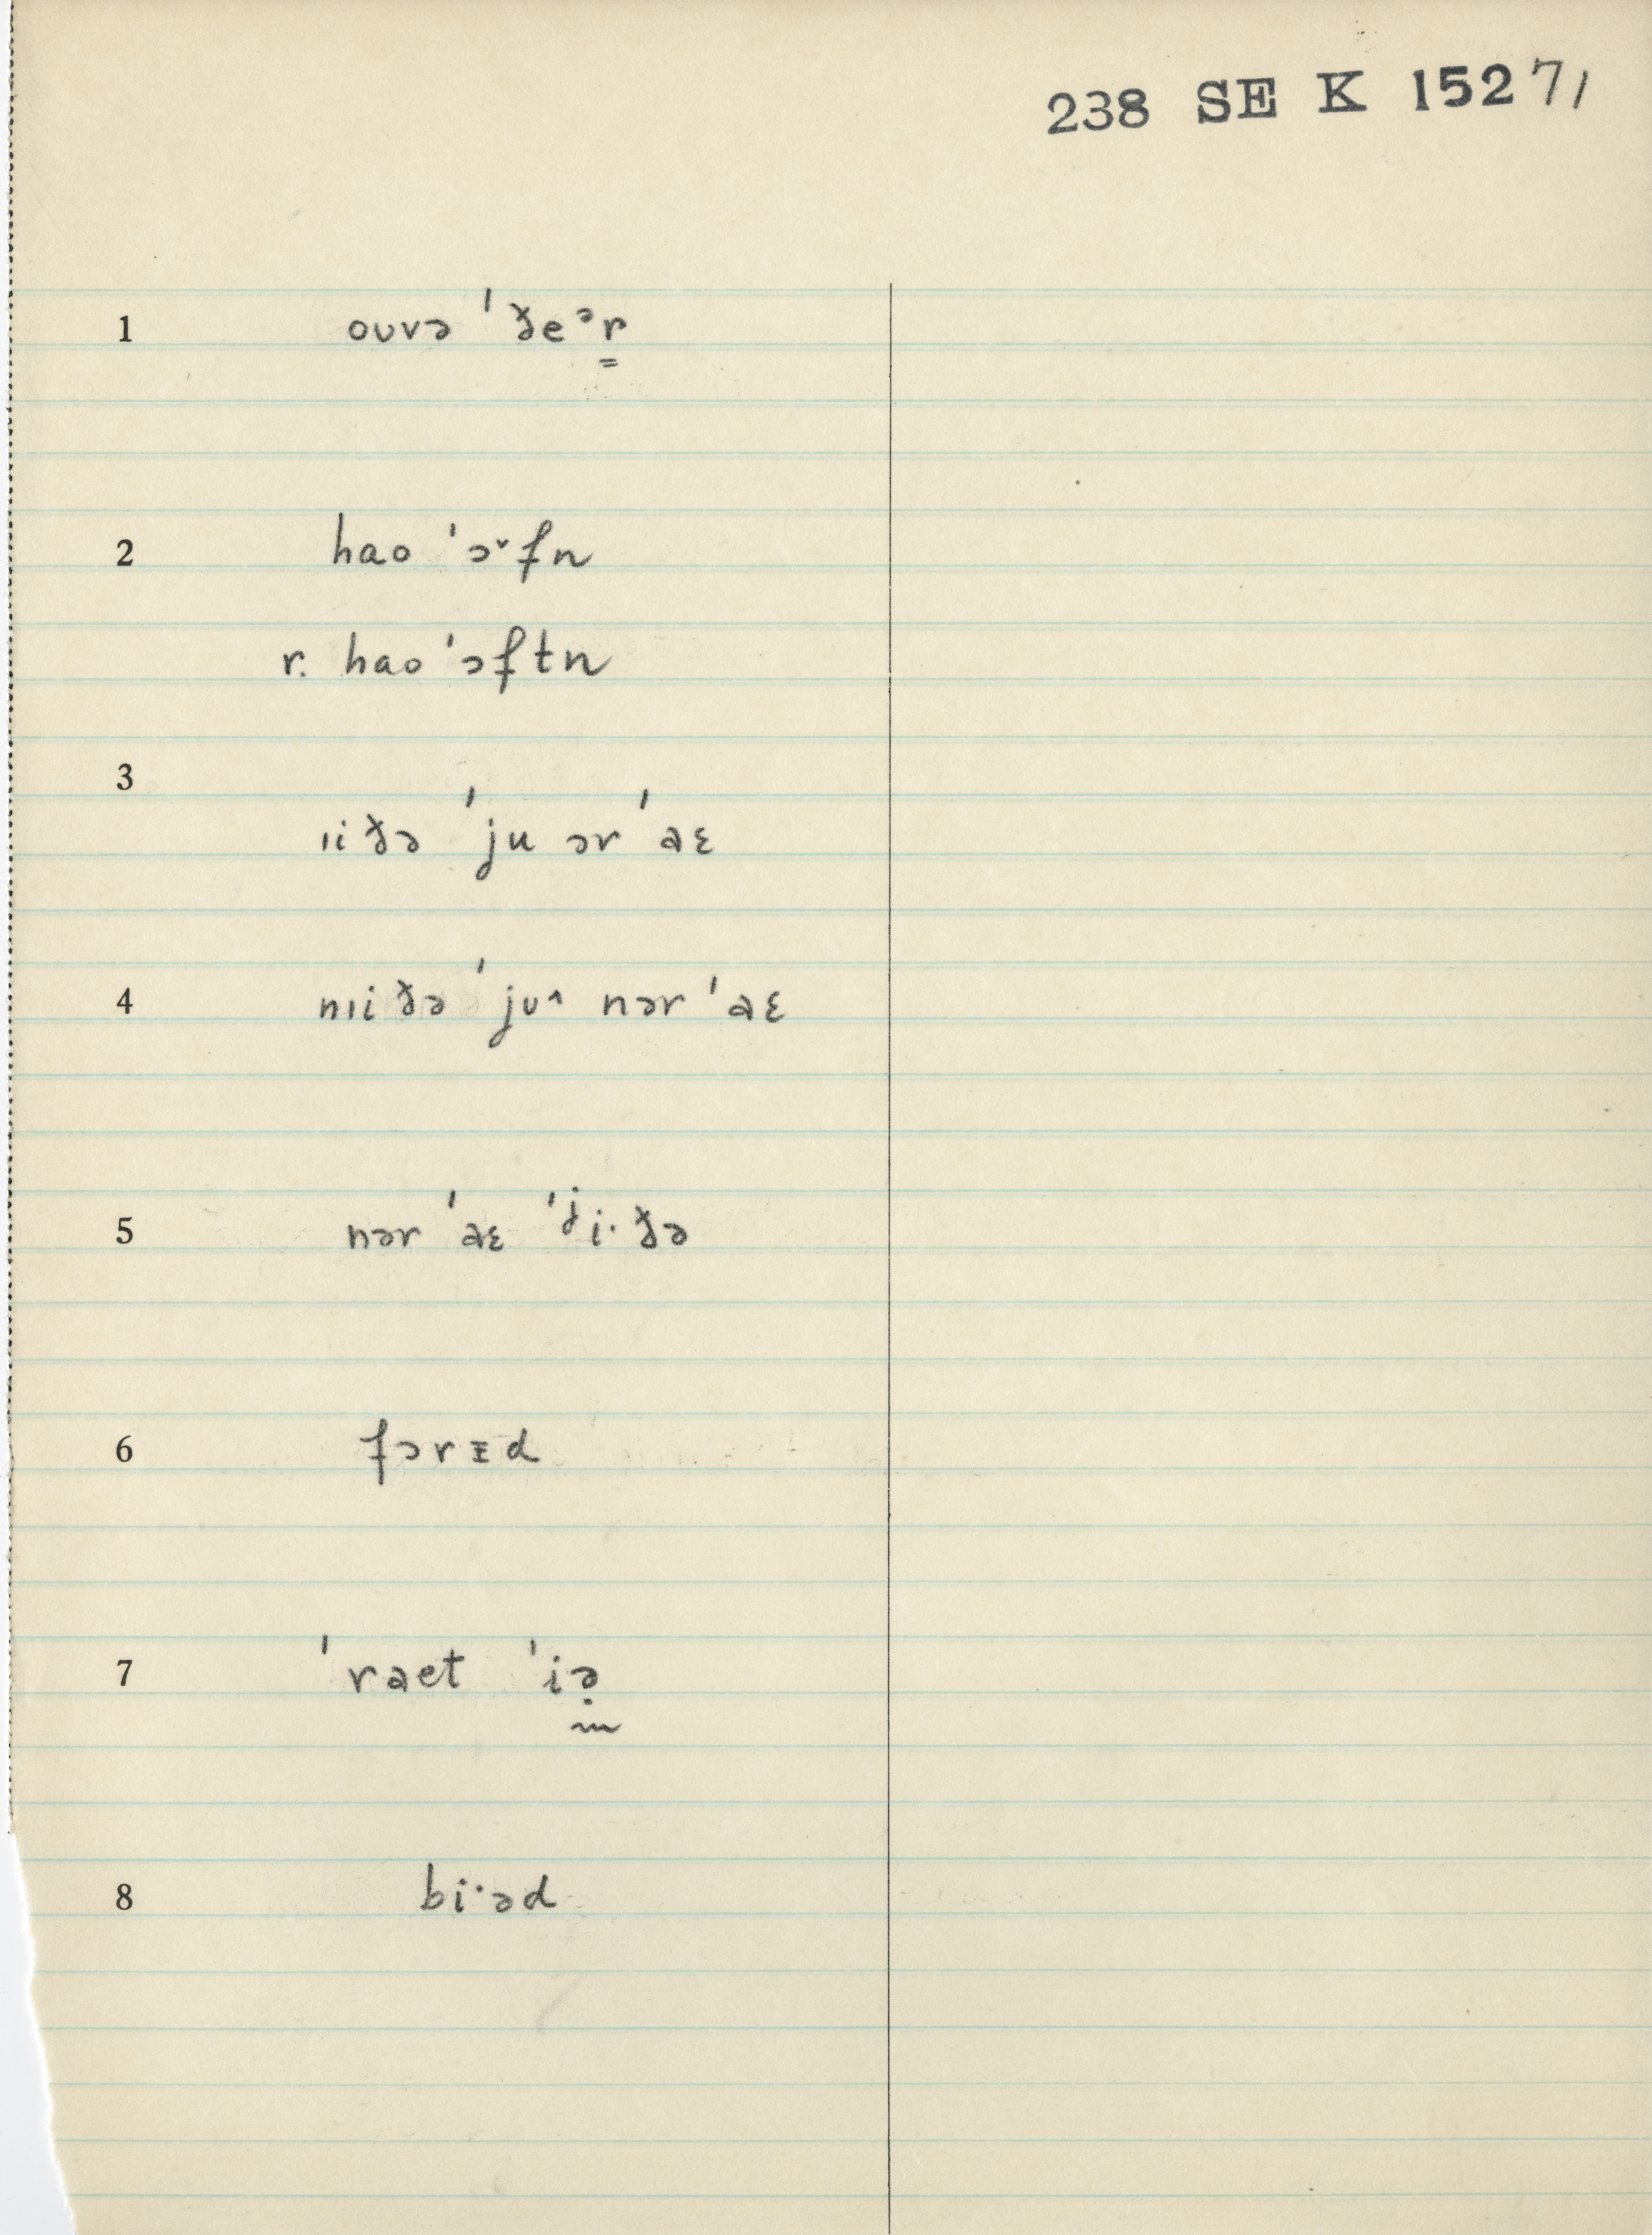 238 SE K 1527/
1 oʊvə ˈðeᵊr̳
2 hao ˈɔ˅fn
r. hao ˈɔftn
3 ɪiðə ˈju ər ˈaɛ
4 nɪiðə ˈjʊ˄ nər ˈaɛ
5 nər ˈaɛ ˈʲi·ðə
6 fɔrɪd
7 ˈraet ˈiə̣
8 bi·əd